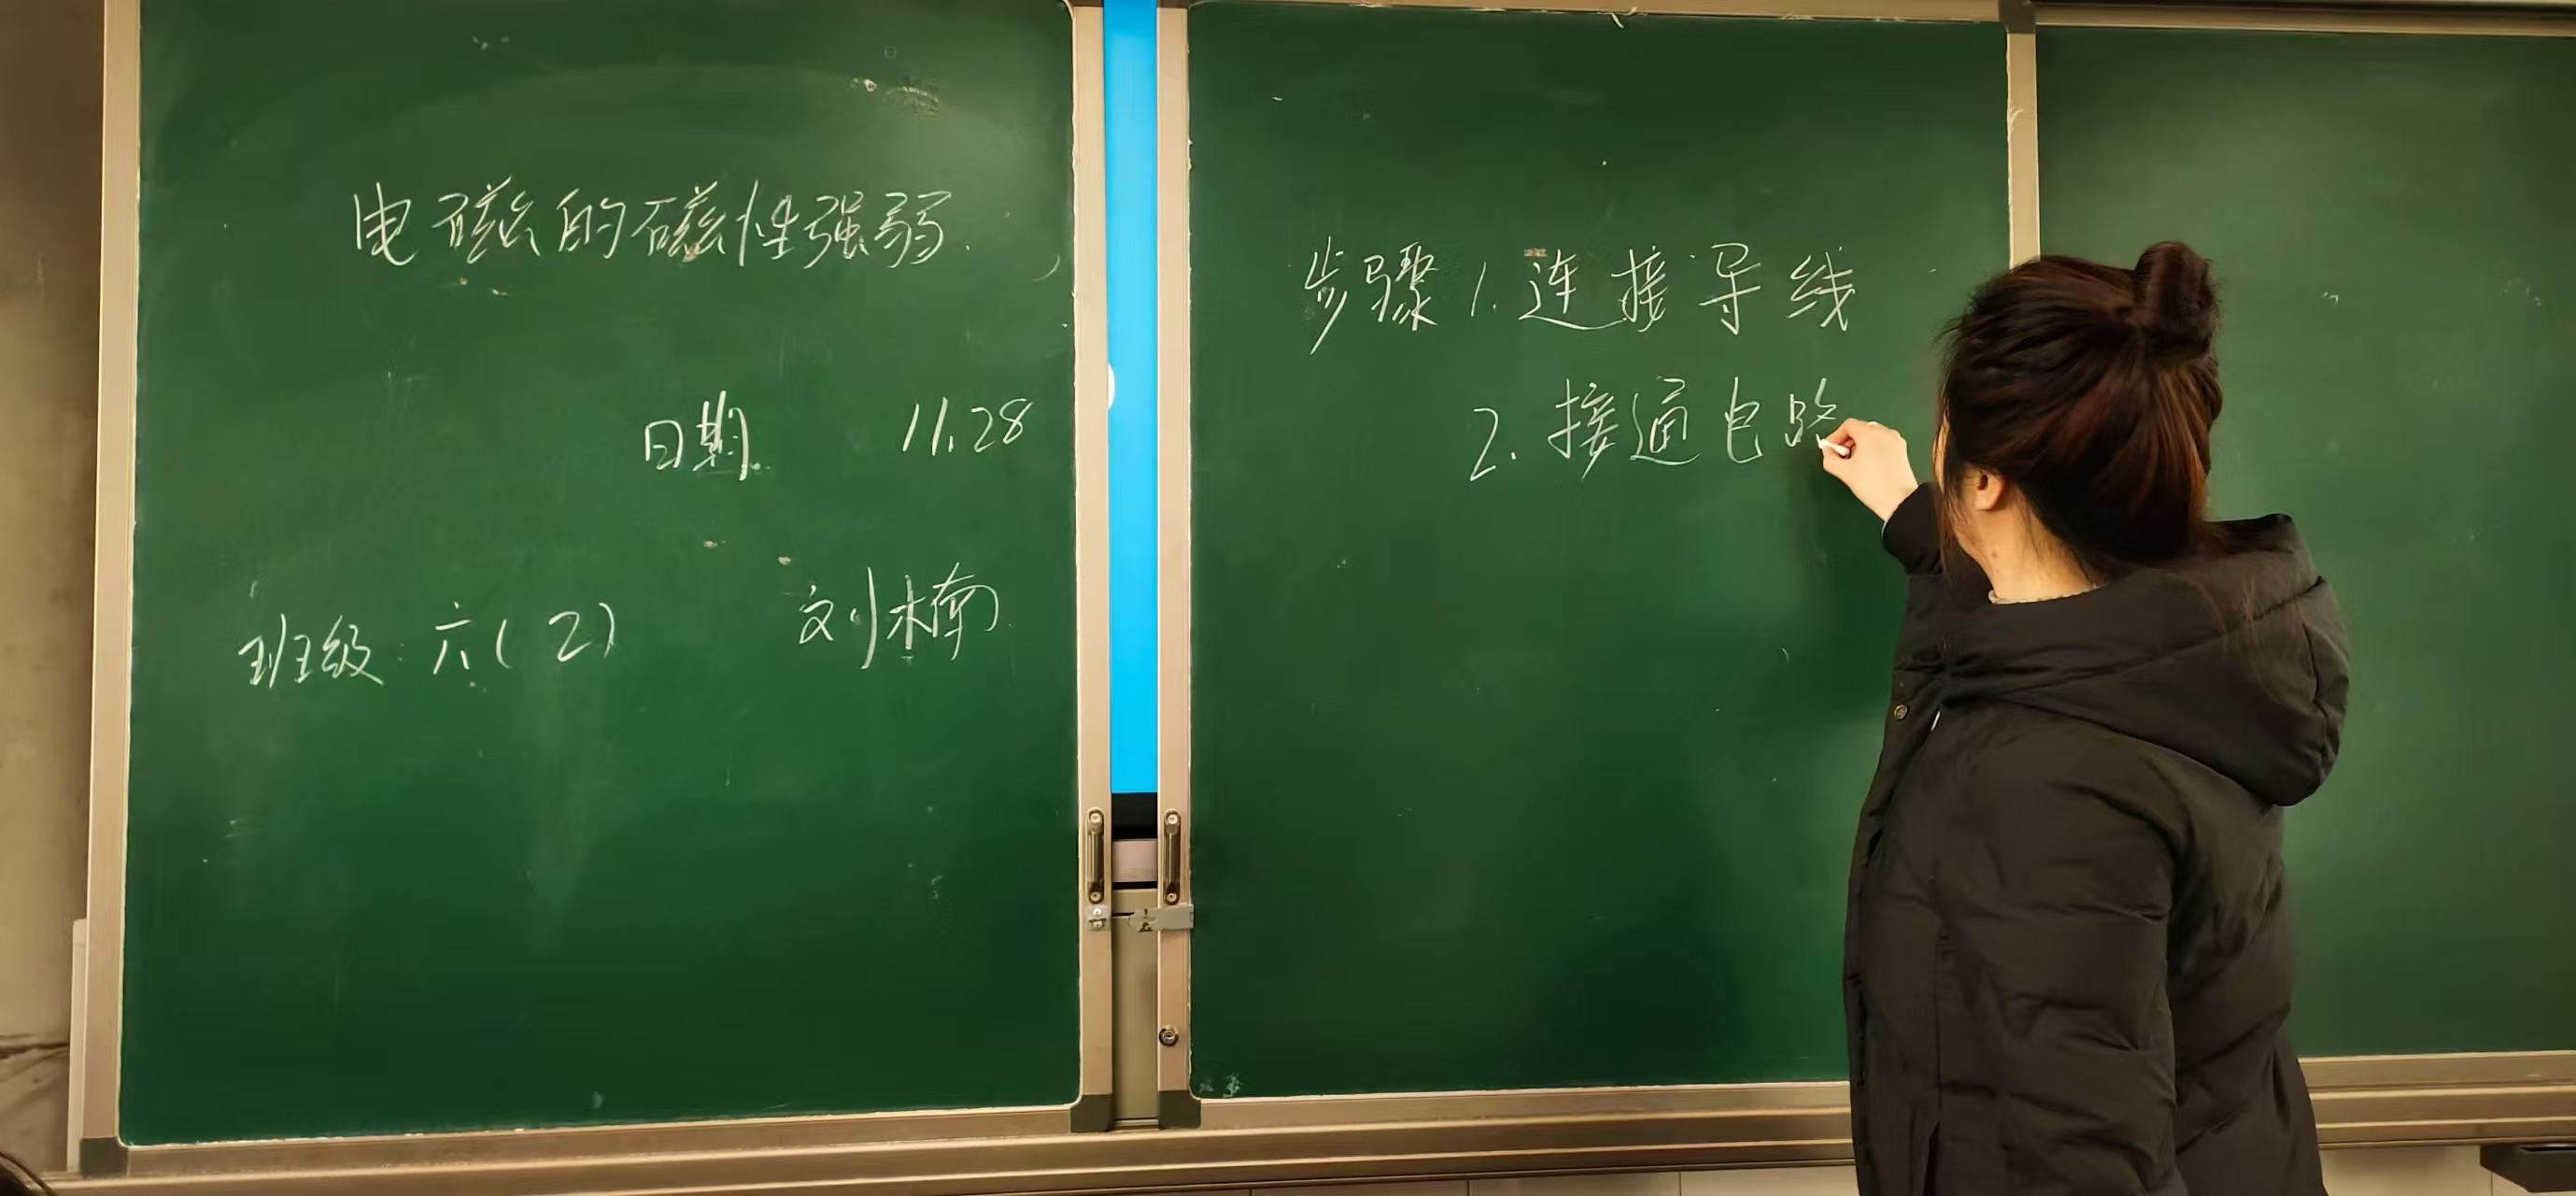 电磁的磁性强弱.
日期 11.28
班级: 六(2) 刘楠
步骤 1. 连接导线
2. 接通电路